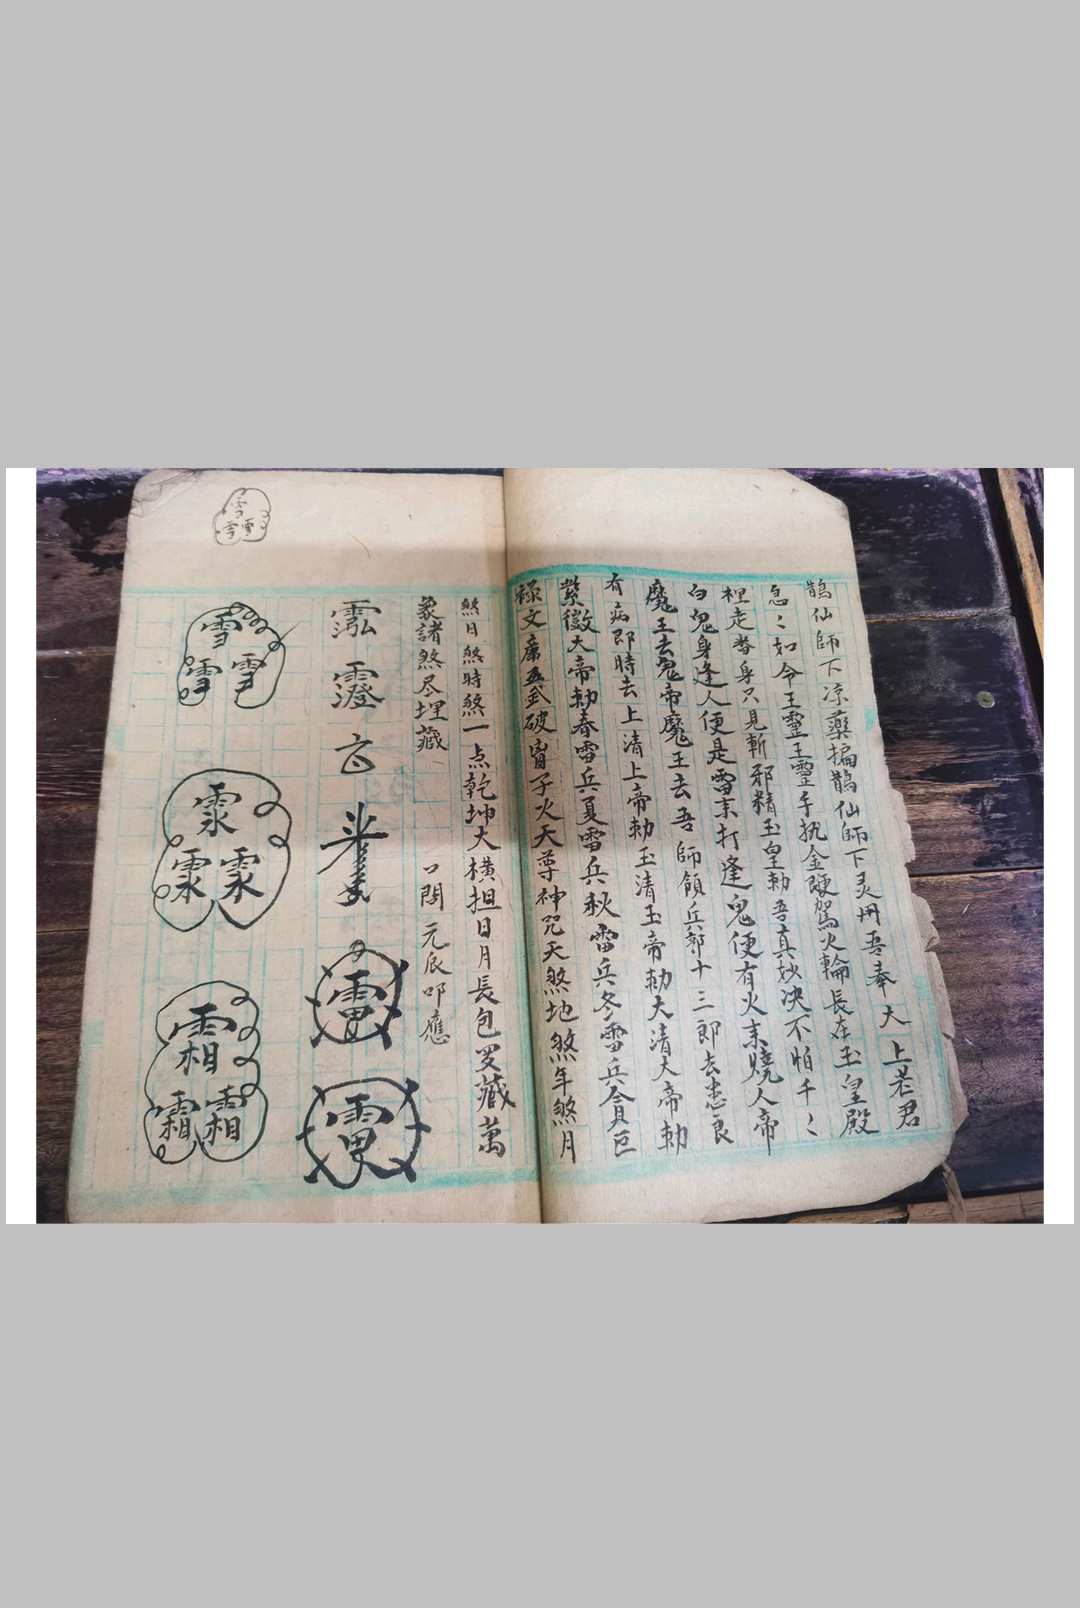 鵲仙師下凉藥揙鵲仙師下灵丹吾奉大上老君
急〻如令王靈王靈手执金鞭駕火輪長在玉皇殿
裡走番身只見斬邪精玉皇勅吾真妙决不怕千〻
白鬼身逢人便是雷末打逢鬼便有火末燒人帝
魔王去鬼帝魔王去吾師領兵郭十三郎去患良
有病即時去上清上帝勅玉清玉帝勅大清大帝勅
紫微大帝勅春雷兵夏雷兵秋雷兵冬雷兵貪巨
禄文廉武破甯子火天尊神咒天煞地煞年煞月
煞日煞時煞一点乾坤大横担日月長包罗藏萬
象諸煞尽埋藏
口問元辰叩應
霐
霛
雷
電
雪
雪
雪
霥
霥
霥
霜
霜
霜
雪
雪
雪